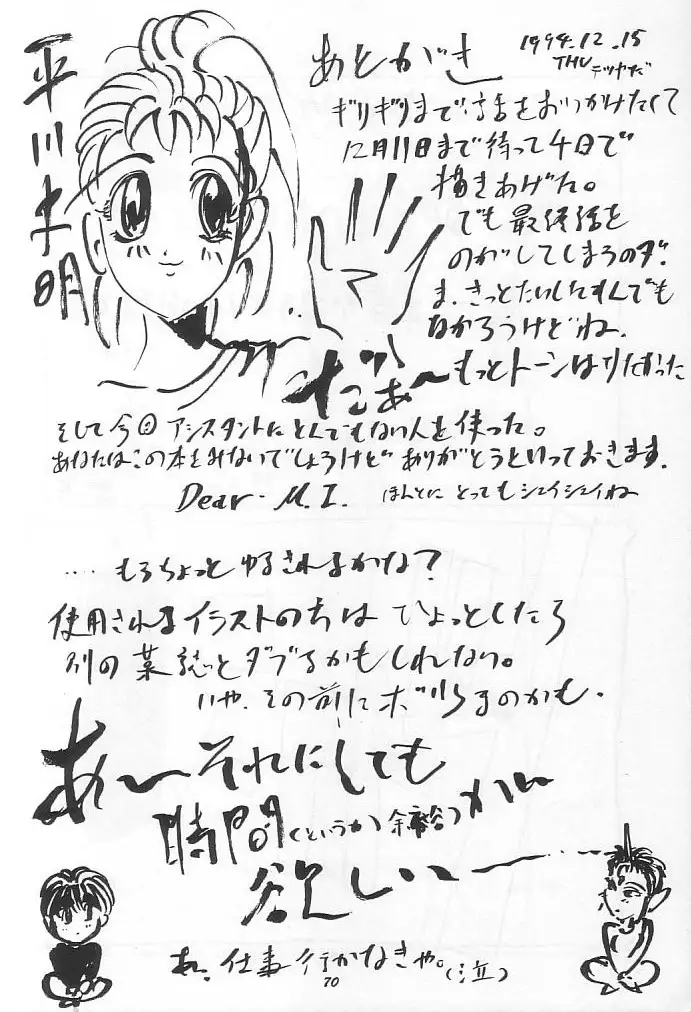 平川
明
あとがき
1994.12.15
THU
テツヤだ
ギリギリまで話をおいかけたくて
12月11日まで待って4日で
描きあげた。
でも最終話を
のがしてしまうのダ.
ま、きっとたいしたもんでも
なかろうけどね.
だぁ〜
もっとトーンはりたかった
そして今回アシスタントにとんでもない人を使った。
あなたはこの本をみないでしょうけどありがとうといっておきます.
Dear・M.I. ほんとにとってもシェイシェイね
‥‥もうちょっとゆるされるかな？
使用されるイラストのうちは ひょっとしたら
別の 誌とダブるかもしれない。
いや、その前にボツりるのかも.
あ〜それにしても
時間(というか余裕)が
欲しいー
あ、仕事行かなきゃ。(泣)
70